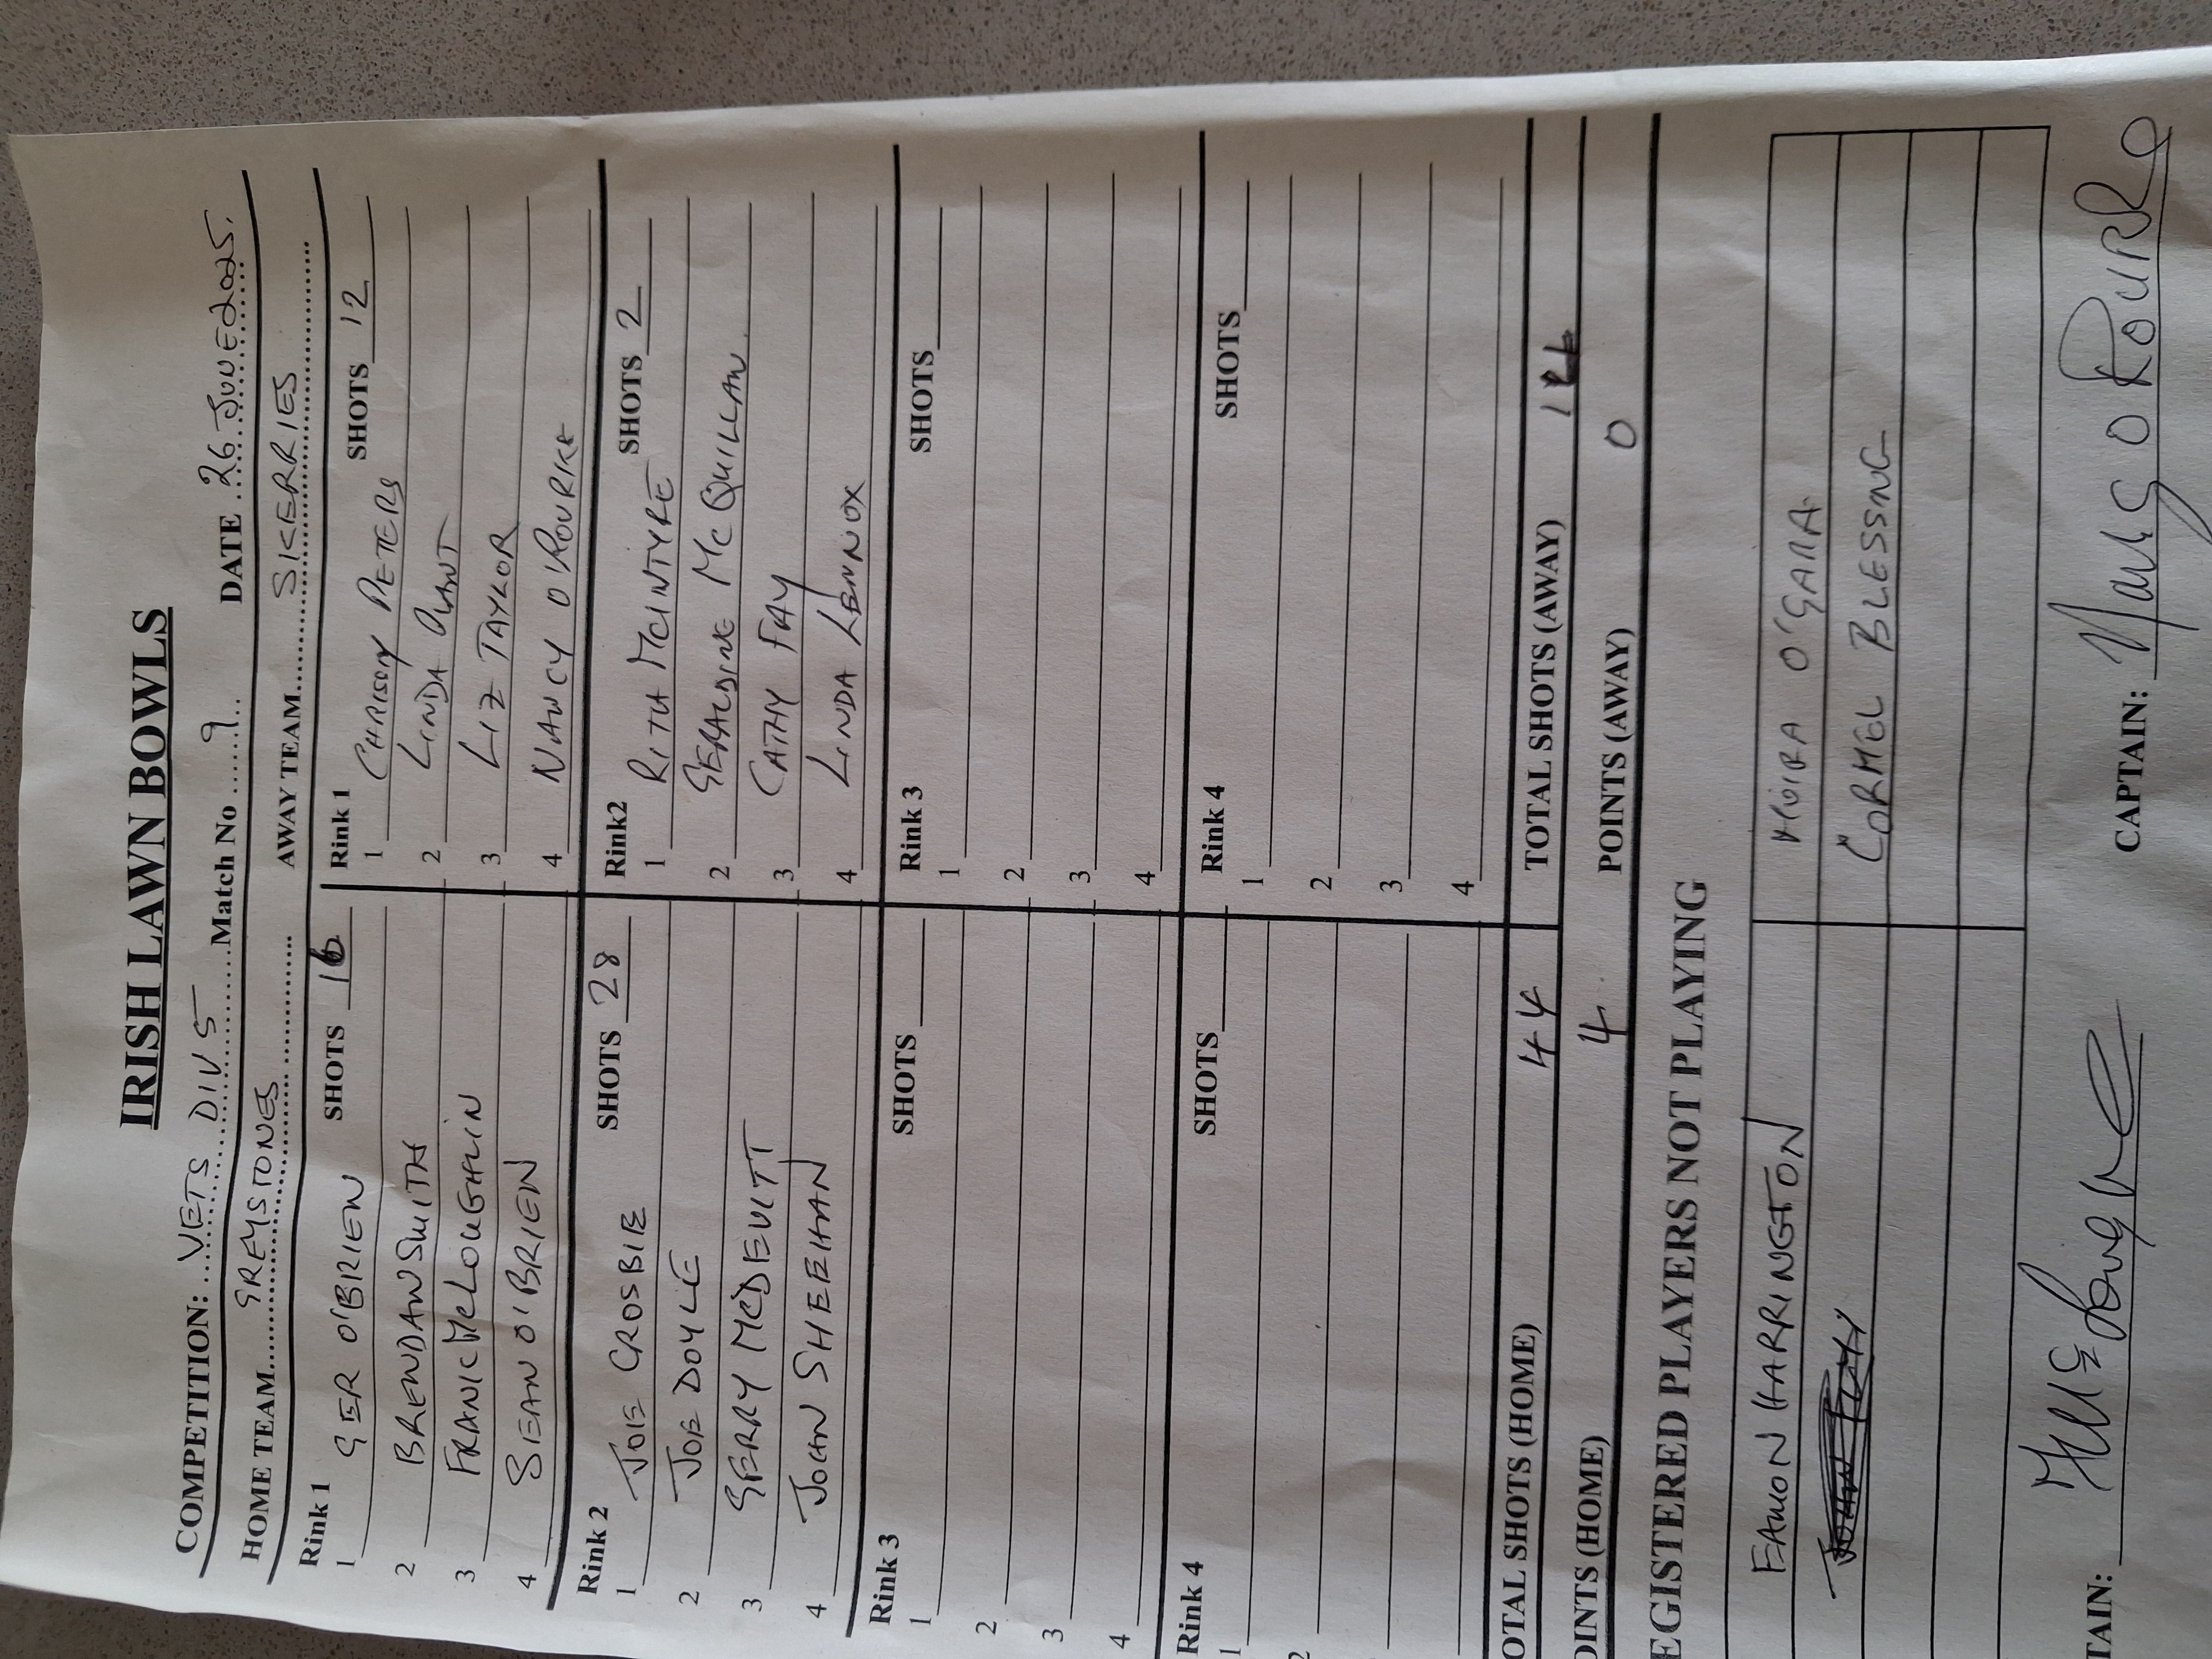 IRISH LAWN BOWLS
COMPETITION: VETS DIV 5 Match No 9 DATE 26 JUNE 2025.
HOME TEAM GREYSTONES AWAY TEAM SKERRIES
Rink 1 SHOTS 16 Rink 1 SHOTS 12
1 GER O'BRIEN 1 CHRISSY PETERS
2 BRENDAN SMITH 2 LINDA
3 FRANK McLOUGHLIN 3 LIZ TAYLOR
4 SEAN O'BRIEN 4 NANCY O'ROURKE
Rink 2 SHOTS 28 Rink2 SHOTS 2
1 JOE CROSBIE 1 RITA McINTYRE
2 JOE DOYLE 2 GERALDINE McQUILLAN
3 GERRY McDEVITT 3 CATHY FAY
4 JOHN SHEEHAN 4 LINDA LENNOX
Rink 3 SHOTS Rink 3 SHOTS
1 1
2 2
3 3
4 4
Rink 4 SHOTS Rink 4 SHOTS
1 1
2 2
3
4
OTAL SHOTS (HOME) 44 TOTAL SHOTS (AWAY) 14
OINTS (HOME) 4 POINTS (AWAY) 0
EGISTERED PLAYERS NOT PLAYING
EAMON HARRINGTON MOIRA O'GARA
CORMEL BLESSING
TAIN: CAPTAIN: Nancy O Rourke